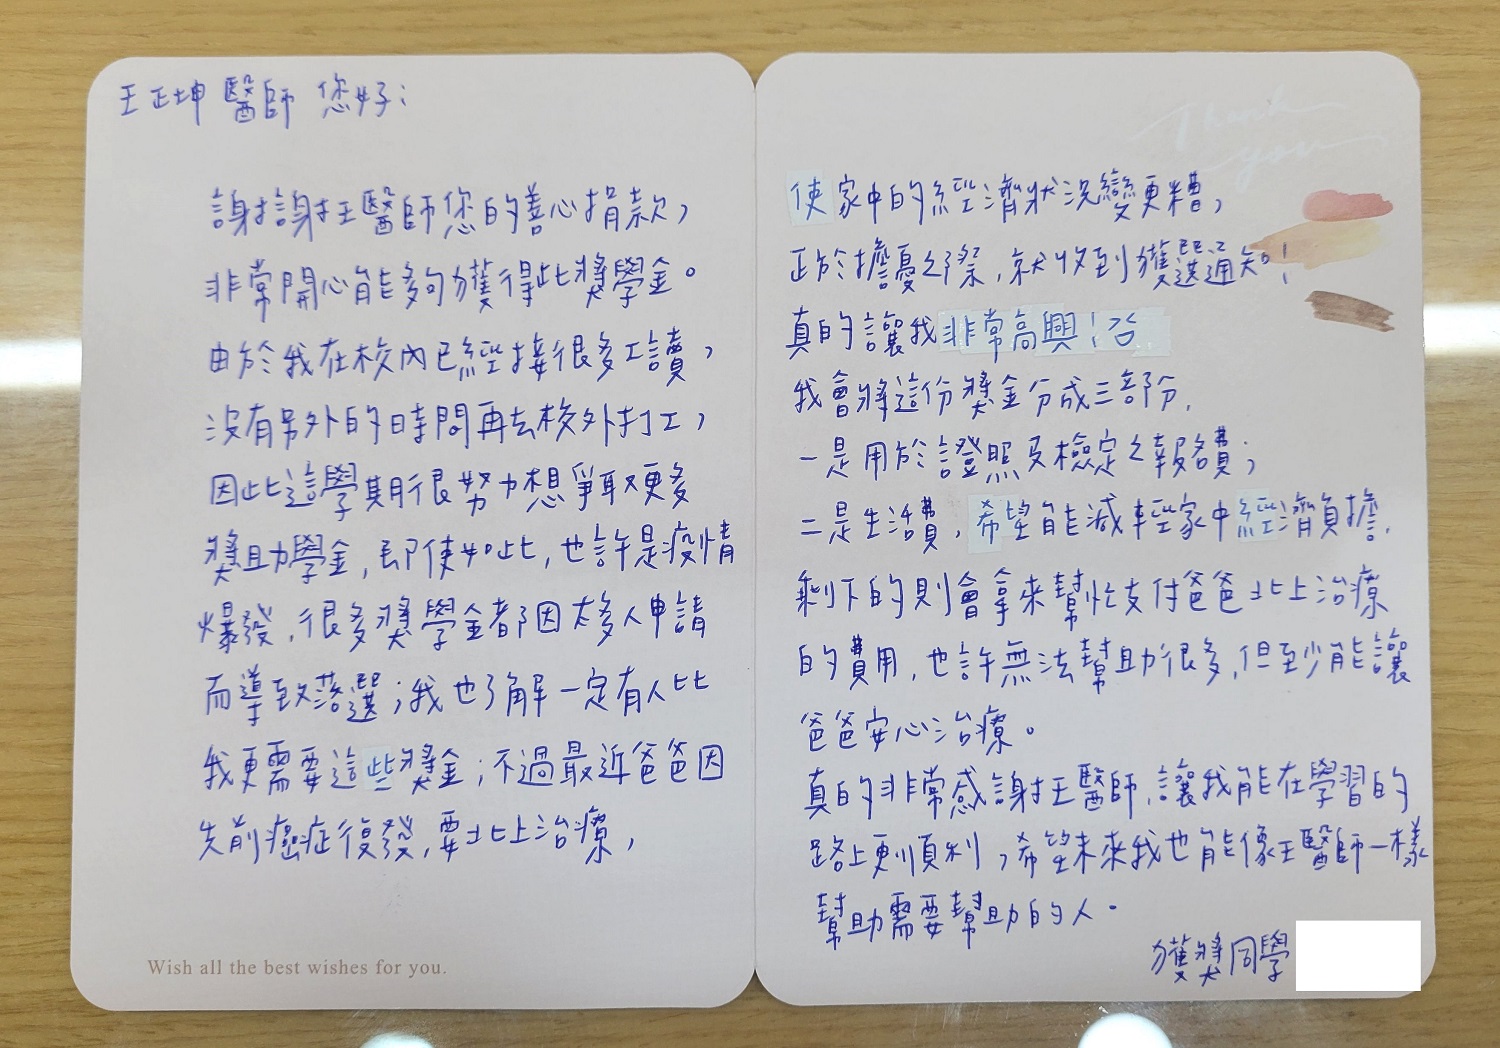 王正坤醫師 您好：
謝謝王醫師您的善心捐款，
非常開心能夠獲得此獎學金。
由於我在校內已經接很多工讀，
沒有另外的時間再去校外打工，
因此這學期很努力想爭取更多
獎助學金，即使如此，也許是疫情
爆發，很多獎學金都因太多人申請
而導致落選；我也了解一定有人比
我更需要這些獎金；不過最近爸爸因
先前癌症復發，要北上治療，
Wish all the best wishes for you.
Thank
you
使家中的經濟狀況變更糟，
正於擔憂之際，就收到獲選通知！
真的讓我非常高興！
我會將這份獎金分成三部份，
一是用於證照及檢定之報名費；
二是生活費，希望能減輕家中經濟負擔，
剩下的則會拿來幫忙支付爸爸北上治療
的費用，也許無法幫助很多，但至少能讓
爸爸安心治療。
真的非常感謝王醫師，讓我能在學習的
路上更順利，希望未來我也能像王醫師一樣
幫助需要幫助的人。
獲獎同學